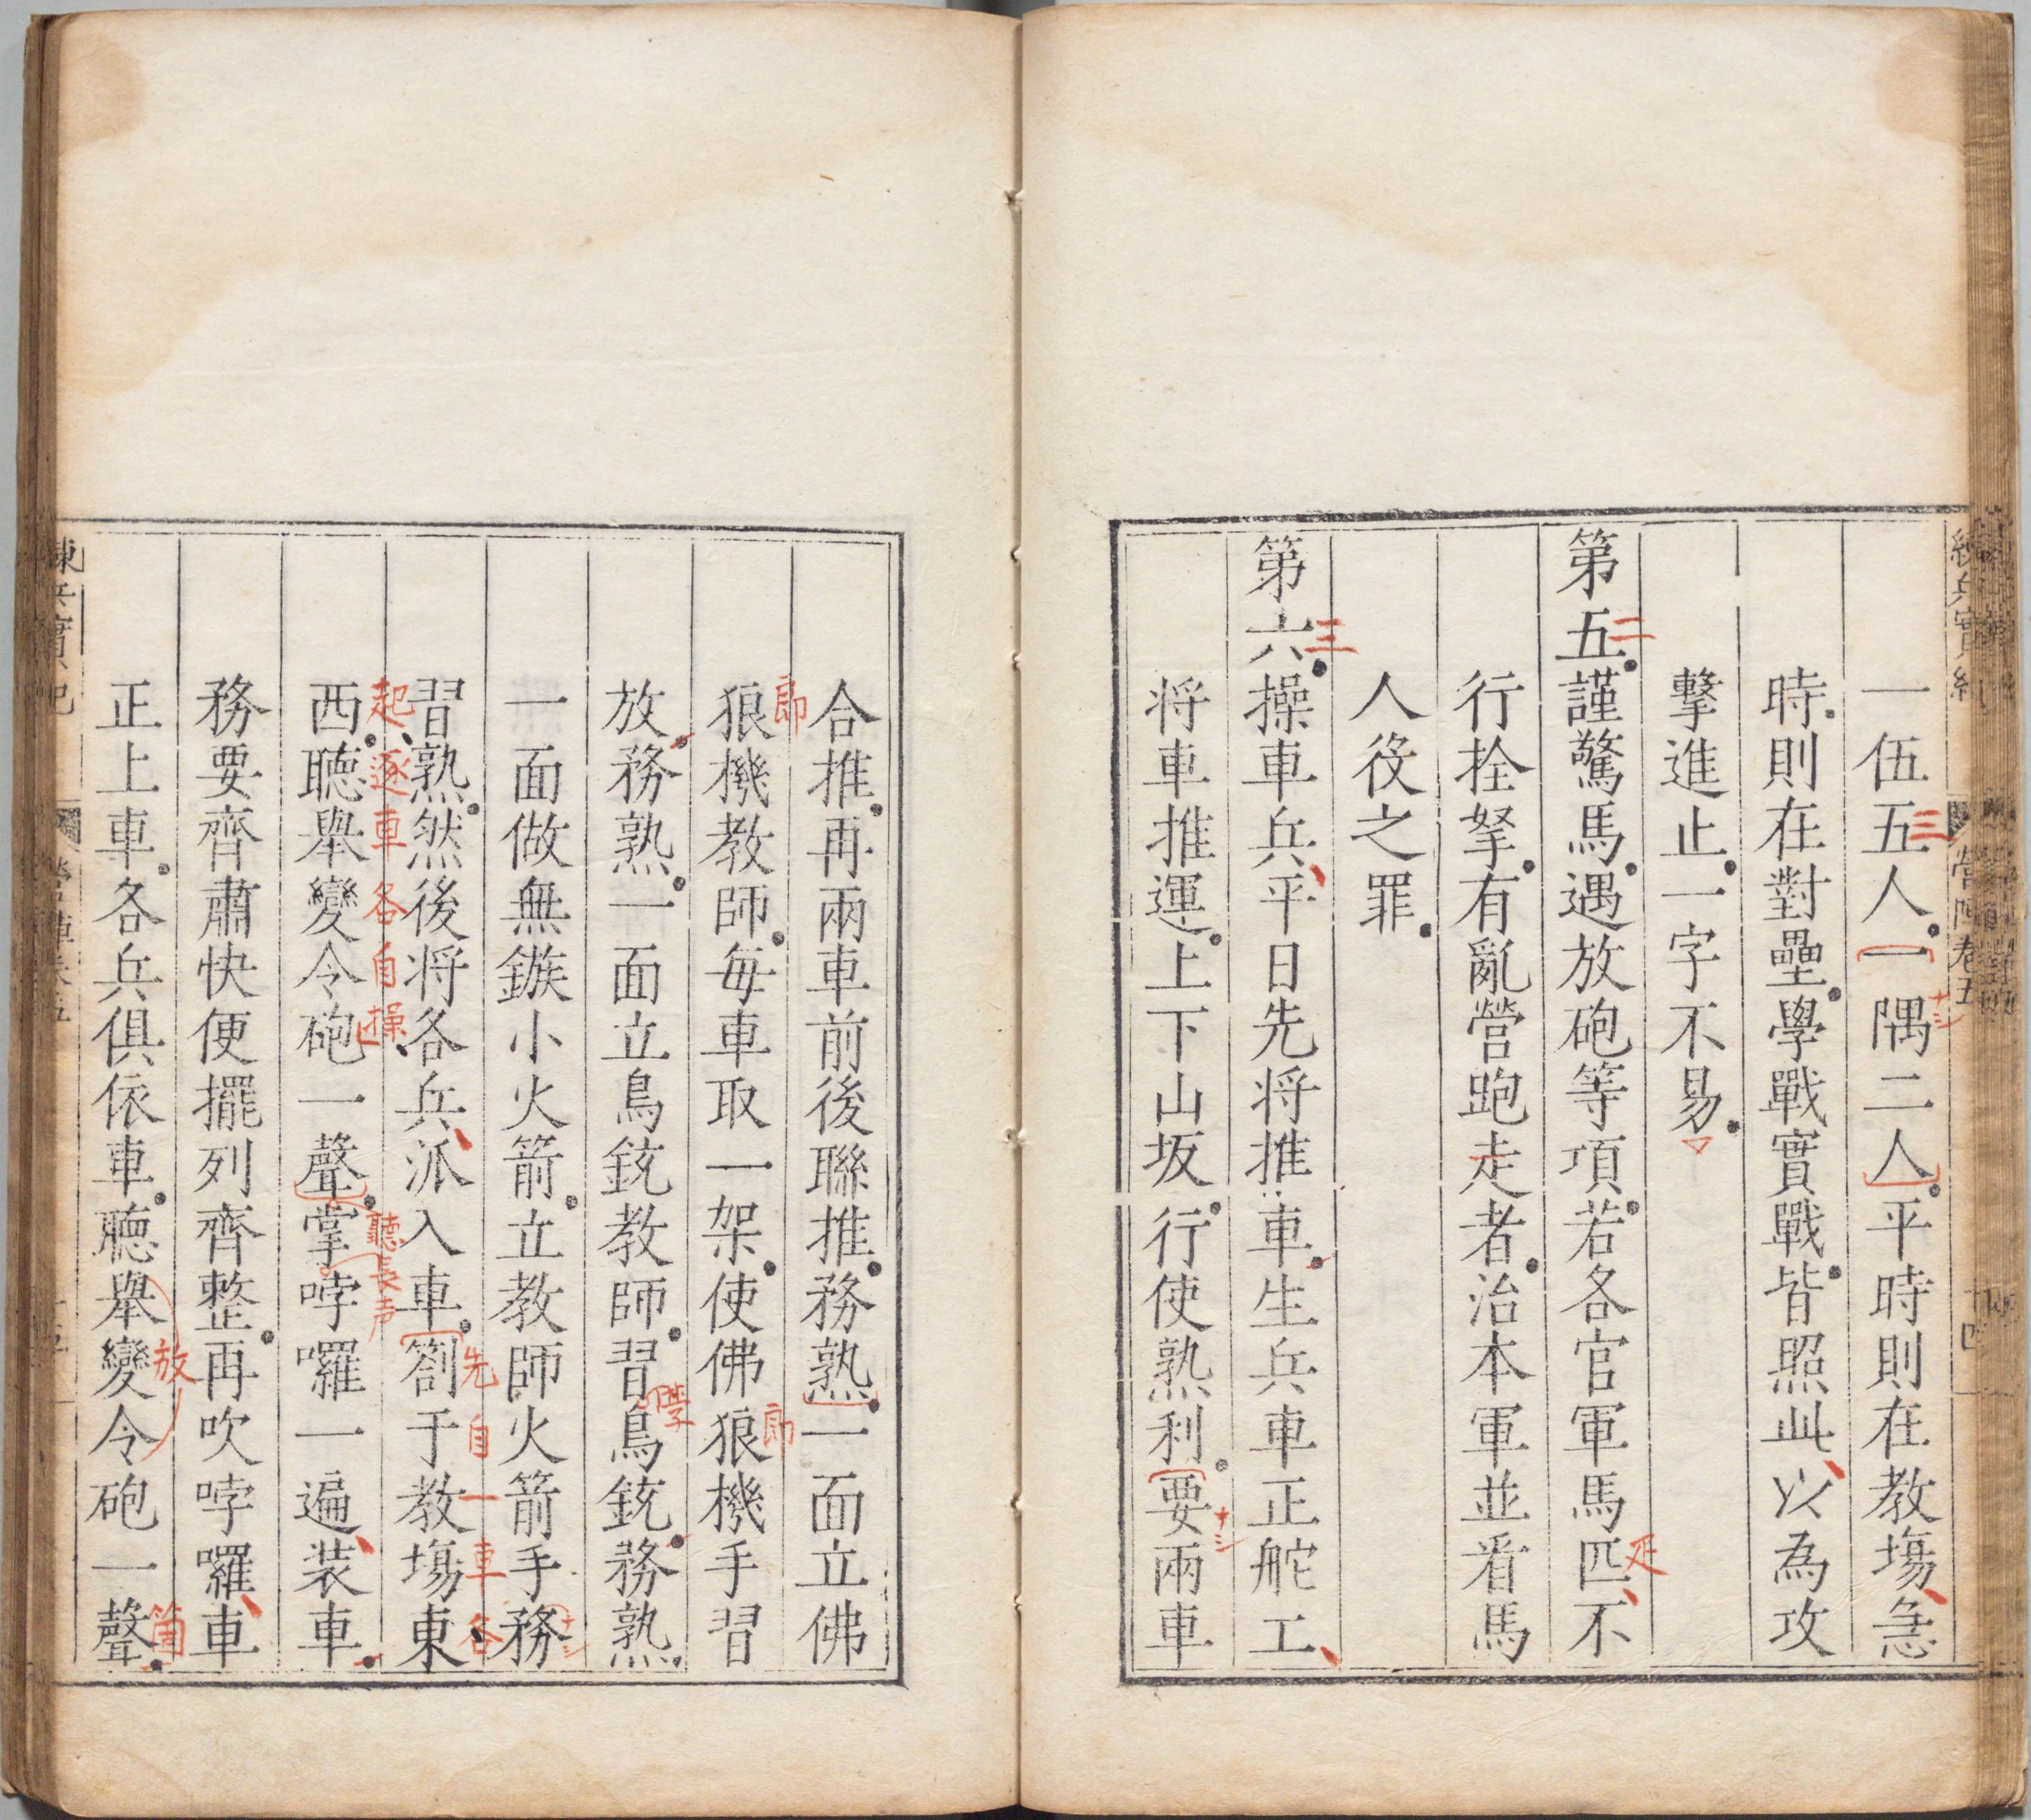 一伍五人一隅二人平時則在教塲急
時則在對壘學戰實戰皆照此以為攻
擊進止一字不易
第五謹驚馬遇放砲等項若各官軍馬匹不
行拴拏有亂營跑走者治本軍並看馬
人役之罪
第六操車兵平日先将推車生兵車正舵工
将車推運上下山坂行使熟利要兩車
合推再兩車前後聯推務熟一面立佛
狼機教師毎車取一架使佛狼機手習
放務熟一面立鳥銃教師習鳥銃務熟
一面做無鏃小火箭立教師火箭手務
習熟然後将各兵派入車劄于教塲東
西聽舉變令砲一聲掌哱囉一遍装車
務要齊肅快便擺列齊整再吹哱囉車
正上車各兵俱依車聽舉變令砲一聲
三
十シ
二
疋
三
十シ
郎
郎
學
十シ
先自一車各
起逐車各自操
聽長声
放
箇
營陣卷五
十四